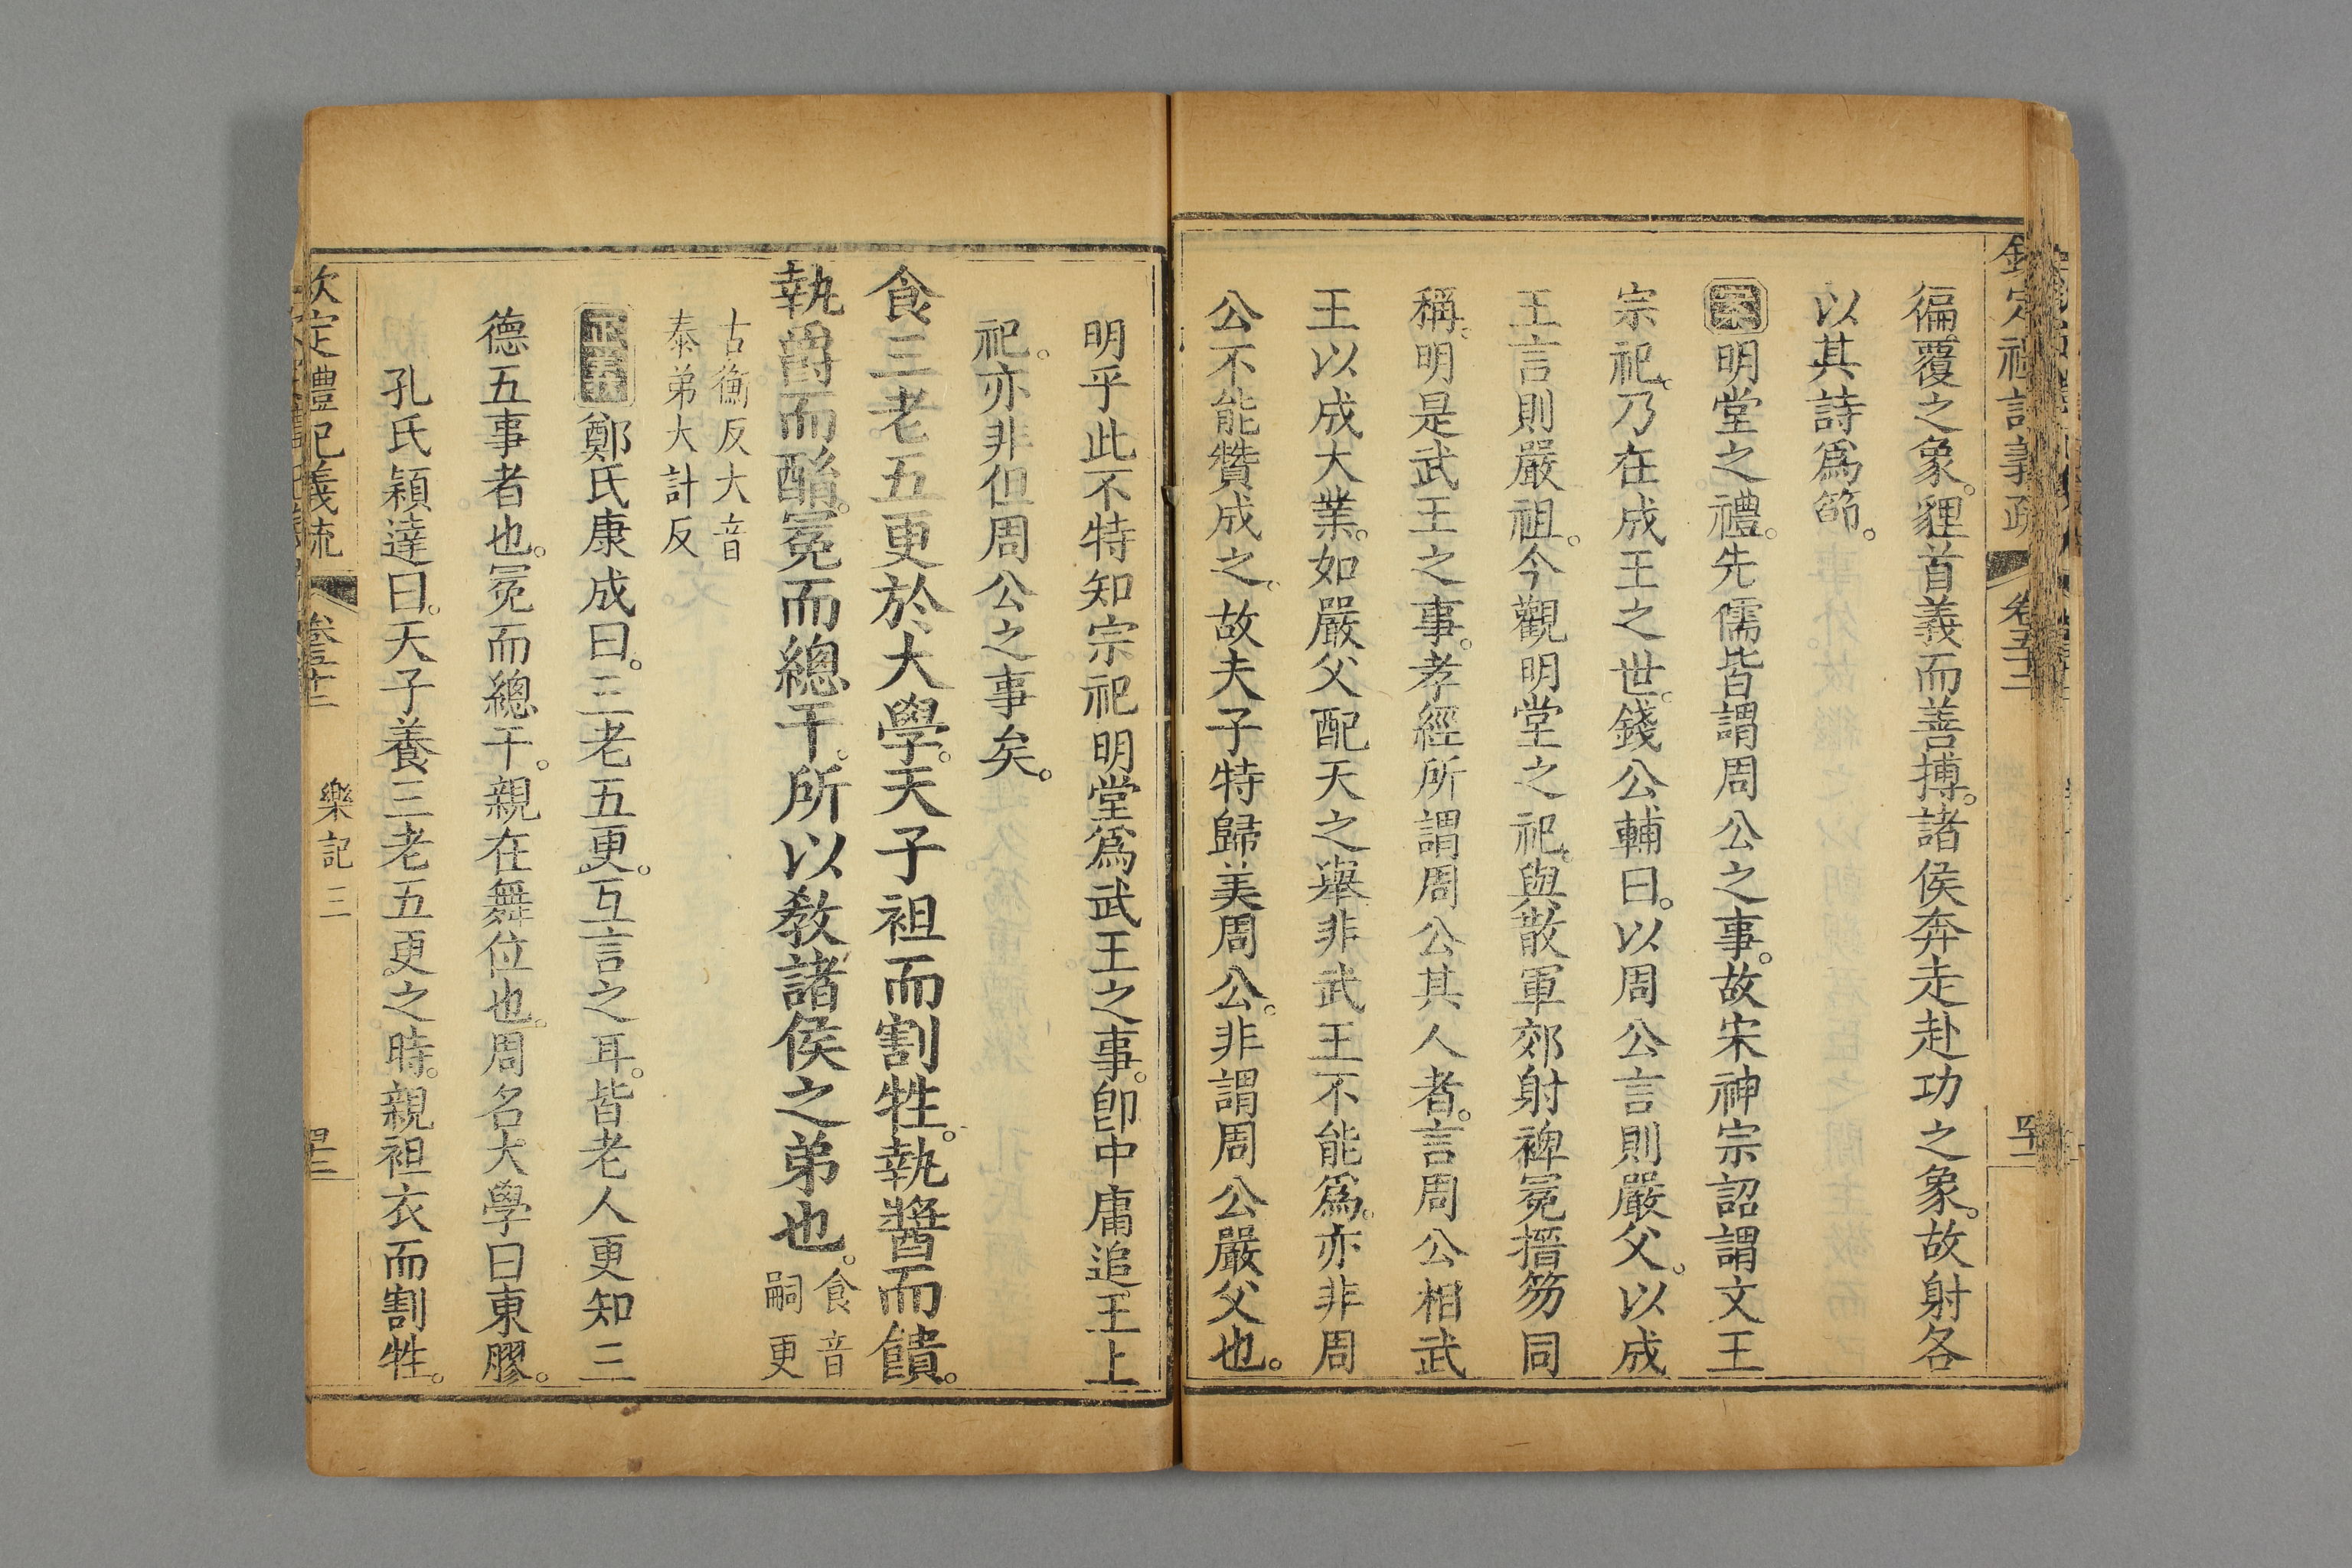 欽定禮記義疏 卷五十二
徧覆之象。貍首義而善搏。諸侯奔走赴功之象。故射各
以其詩爲節。
案明堂之禮。先儒皆謂周公之事。故宋神宗詔謂文王
宗祀。乃在成王之世。錢公輔曰。以周公言則嚴父。以成
王言則嚴祖。今觀明堂之祀。與散軍郊射裨冕搢笏同
稱。明是武王之事。孝經所謂周公其人者。言周公相武
王以成大業。如嚴父配天之舉非武王不能爲。亦非周
公不能贊成之。故夫子特歸美周公。非謂周公嚴父也。
明乎此不特知宗祀明堂爲武王之事。卽中庸追王上
祀。亦非但周公之事矣。
食三老五更於大學。天子袒而割牲。執醬而饋。
執爵而酳。冕而總干。所以敎諸侯之弟也。食音
嗣更
古衡反大音
泰弟大計反
正義鄭氏康成曰。三老五更。互言之耳。皆老人更知三
德五事者也。冕而總干。親在舞位也。周名大學曰東膠。
孔氏穎達曰。天子養三老五更之時。親袒衣而割牲。
欽定禮記義疏 卷五十二 樂記三